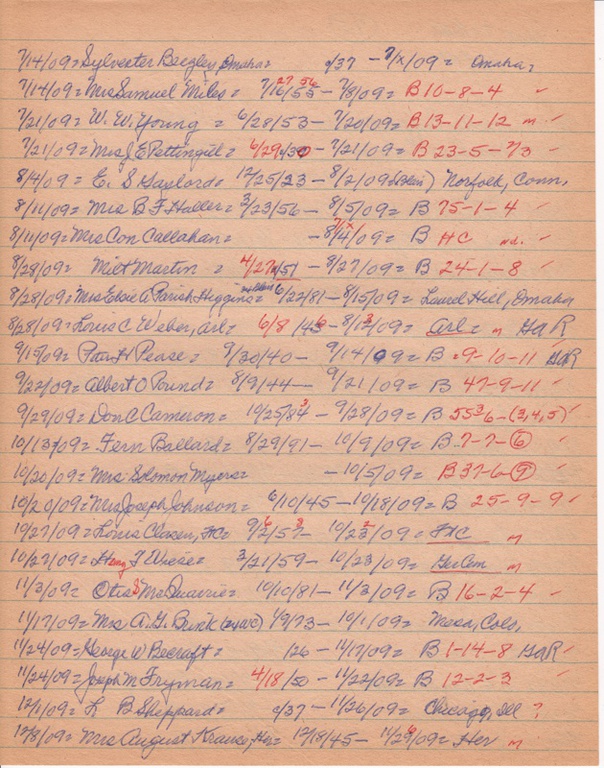 7/14/09= Sylvester Beezley, Omaha= c/37 - 7/x/09= Omaha?
7/14/09= Mrs Samuel Miles= 7/16/53 27 56 - 7/8/09= B 10-8-4 ✓
7/21/09= W. W. Young = 6/28/53 - 7/20/09= B 13-11-12 m ✓
7/21/09= Mrs J E Pettingill= 6/29/30 - 7/21/09= B 23-5-7/3 ✓
8/4/09= E. S Gaylord= 12/25/23 - 8/2/09 (Blair) Norfolk, Conn.
8/11/09= Mrs B F Haller= 3/23/56 - 8/5/09= B 75-1-4 ✓
8/11/09= Mrs Con Callahan= - 8/4/09= 7/x B HC nd. ✓
8/28/09= Milt Martin = 4/27/51 - 8/27/09= B 24-1-8 ✓
8/28/09= Mrs Elsie A Parish Higgins= 6/22/81 - 8/15/09= Laurel Hill, Omaha
8/28/09= Louis C Weber, Arl= 6/8/43 6 - 8/12/09= 3 Arl= m GaR
9/15/09= Pease= 9/30/40 - 9/14/09= B = 9-10-11 GaR
9/22/09= Albert O Pound= 8/9/44 - 9/21/09= B 47-9-11 ✓
9/29/09= Don C Cameron= 10/25/84 3 - 9/28/09= B 55 3 6-(3,4,5) ✓
10/13/09= Fern Ballard= 8/29/91 - 10/9/09= B 7-7-6 ✓
10/20/09= Mrs Solomon Myers= - 10/5/09= B 37-6-9 ✓
10/20/09= Mrs Joseph Johnson= 6/10/45 - 10/18/09= B 25-9-9 ✓
10/27/09= Louis Clasen, FtC= 9/2/57 6 3 - 10/23/09= 2 FtC m
10/27/09= Henry T Wiese= 3/21/59 - 10/23/09= Ger Cem m
11/3/09= Otis S McQuarrie= 10/10/81 - 11/3/09= B 16-2-4 ✓
11/17/09= Mrs A. G. Brink 1/9/73 - 10/1/09= Mesa, Colo,
11/24/09= George W Becraft= /26 - 11/17/09= B 1-14-8 GaR ✓
11/24/09= Joseph M Fryman= 4/18/50 - 11/22/09= B 12-2-3 ✓
12/1/09= L B Sheppard= c/37 - 11/26/09= Chicago, Ill ?
12/8/09= Mrs August Krause, Her= 12/18/45 - 11/29/09= 6 Her m